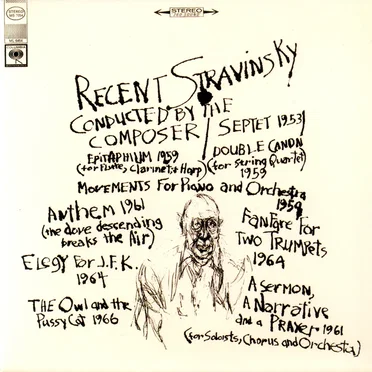 STEREO
COLUMBIA
RECENT STRAVINSKY
CONDUCTED BY THE
COMPOSER
SEPTET 1953
EPITAPHIUM 1959
(for Flute, Clarinet + Harp)
DOUBLE CANON
(for String Quartet)
1959
MOVEMENTS FOR Piano and Orchestra
1959
Anthem 1961
(the dove descending
breaks the Air)
FANFARE FOR
TWO TRUMPETS
1964
ELEGY FOR J.F.K.
1964
THE Owl and the
Pussy Cat 1966
A SERMON,
A Narrative
and a PRAYER 1961
(for Soloists, Chorus and Orchestra)